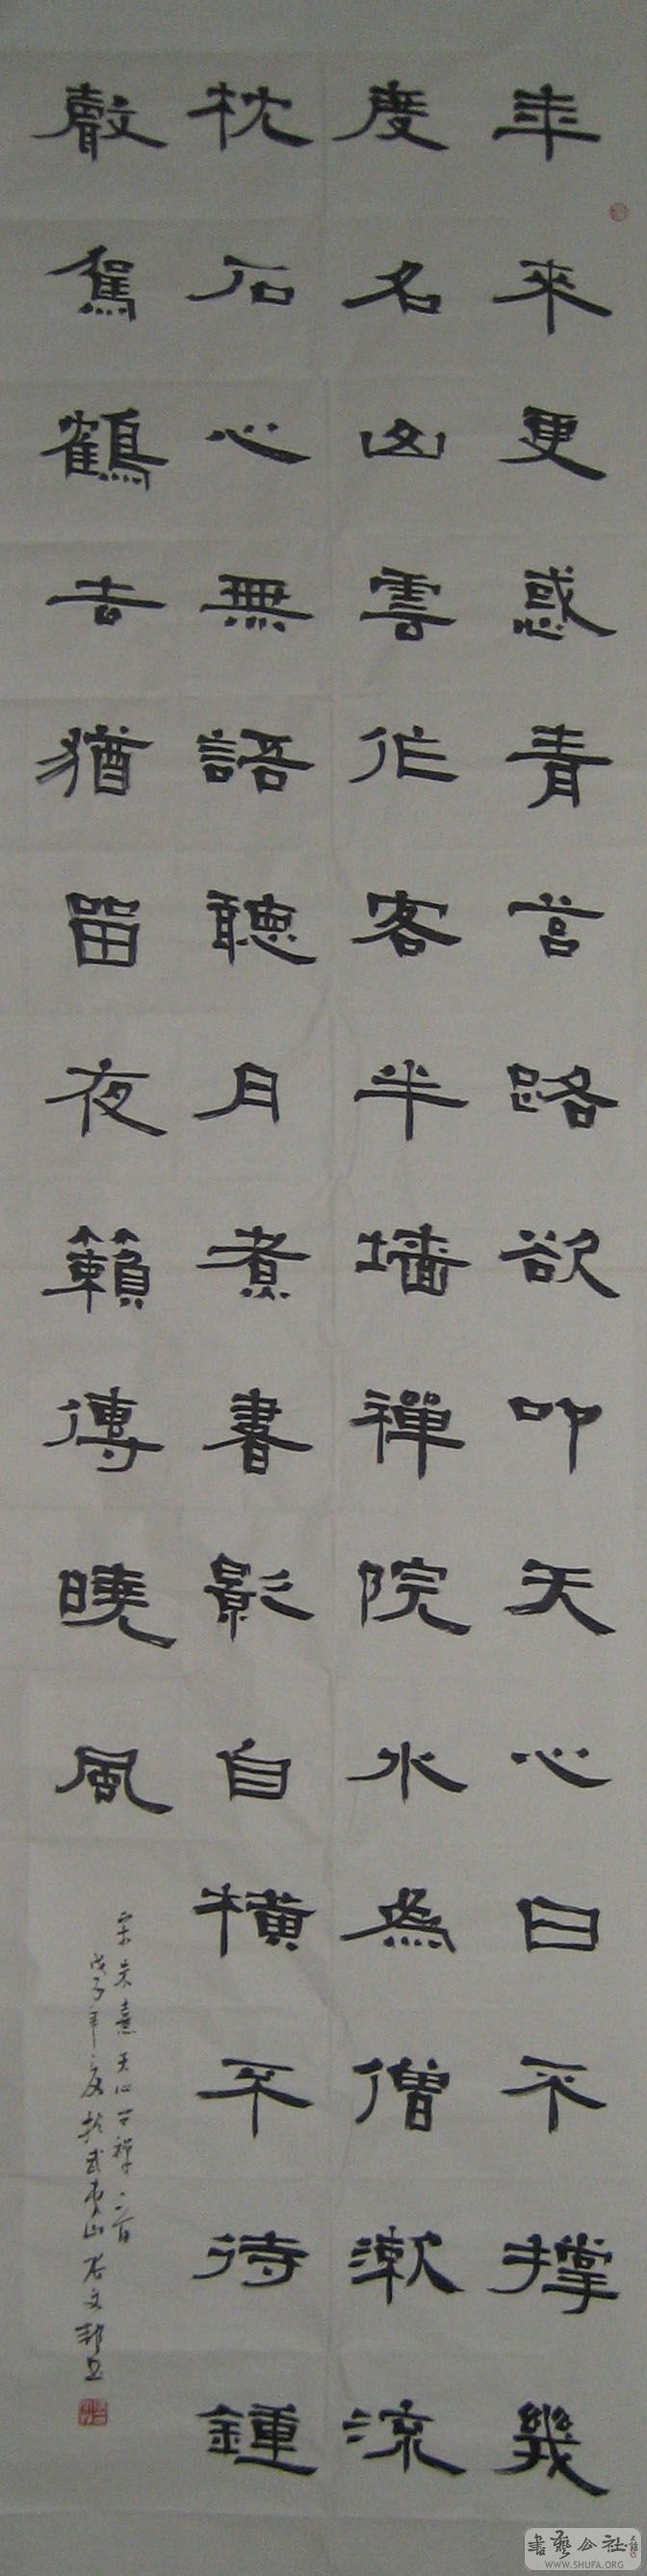 年來更惑青苔路欲叩天心曰不撑幾
度名山雲作客半墙禪院水為僧漱流
枕石心無語聽月煮書影自橫不待鍾
聲駕鶴去猶留夜籟傳曉風
宋朱熹天心問禪
戊子年夏於武夷山
書藝公社
WWW.SHUFA.ORG